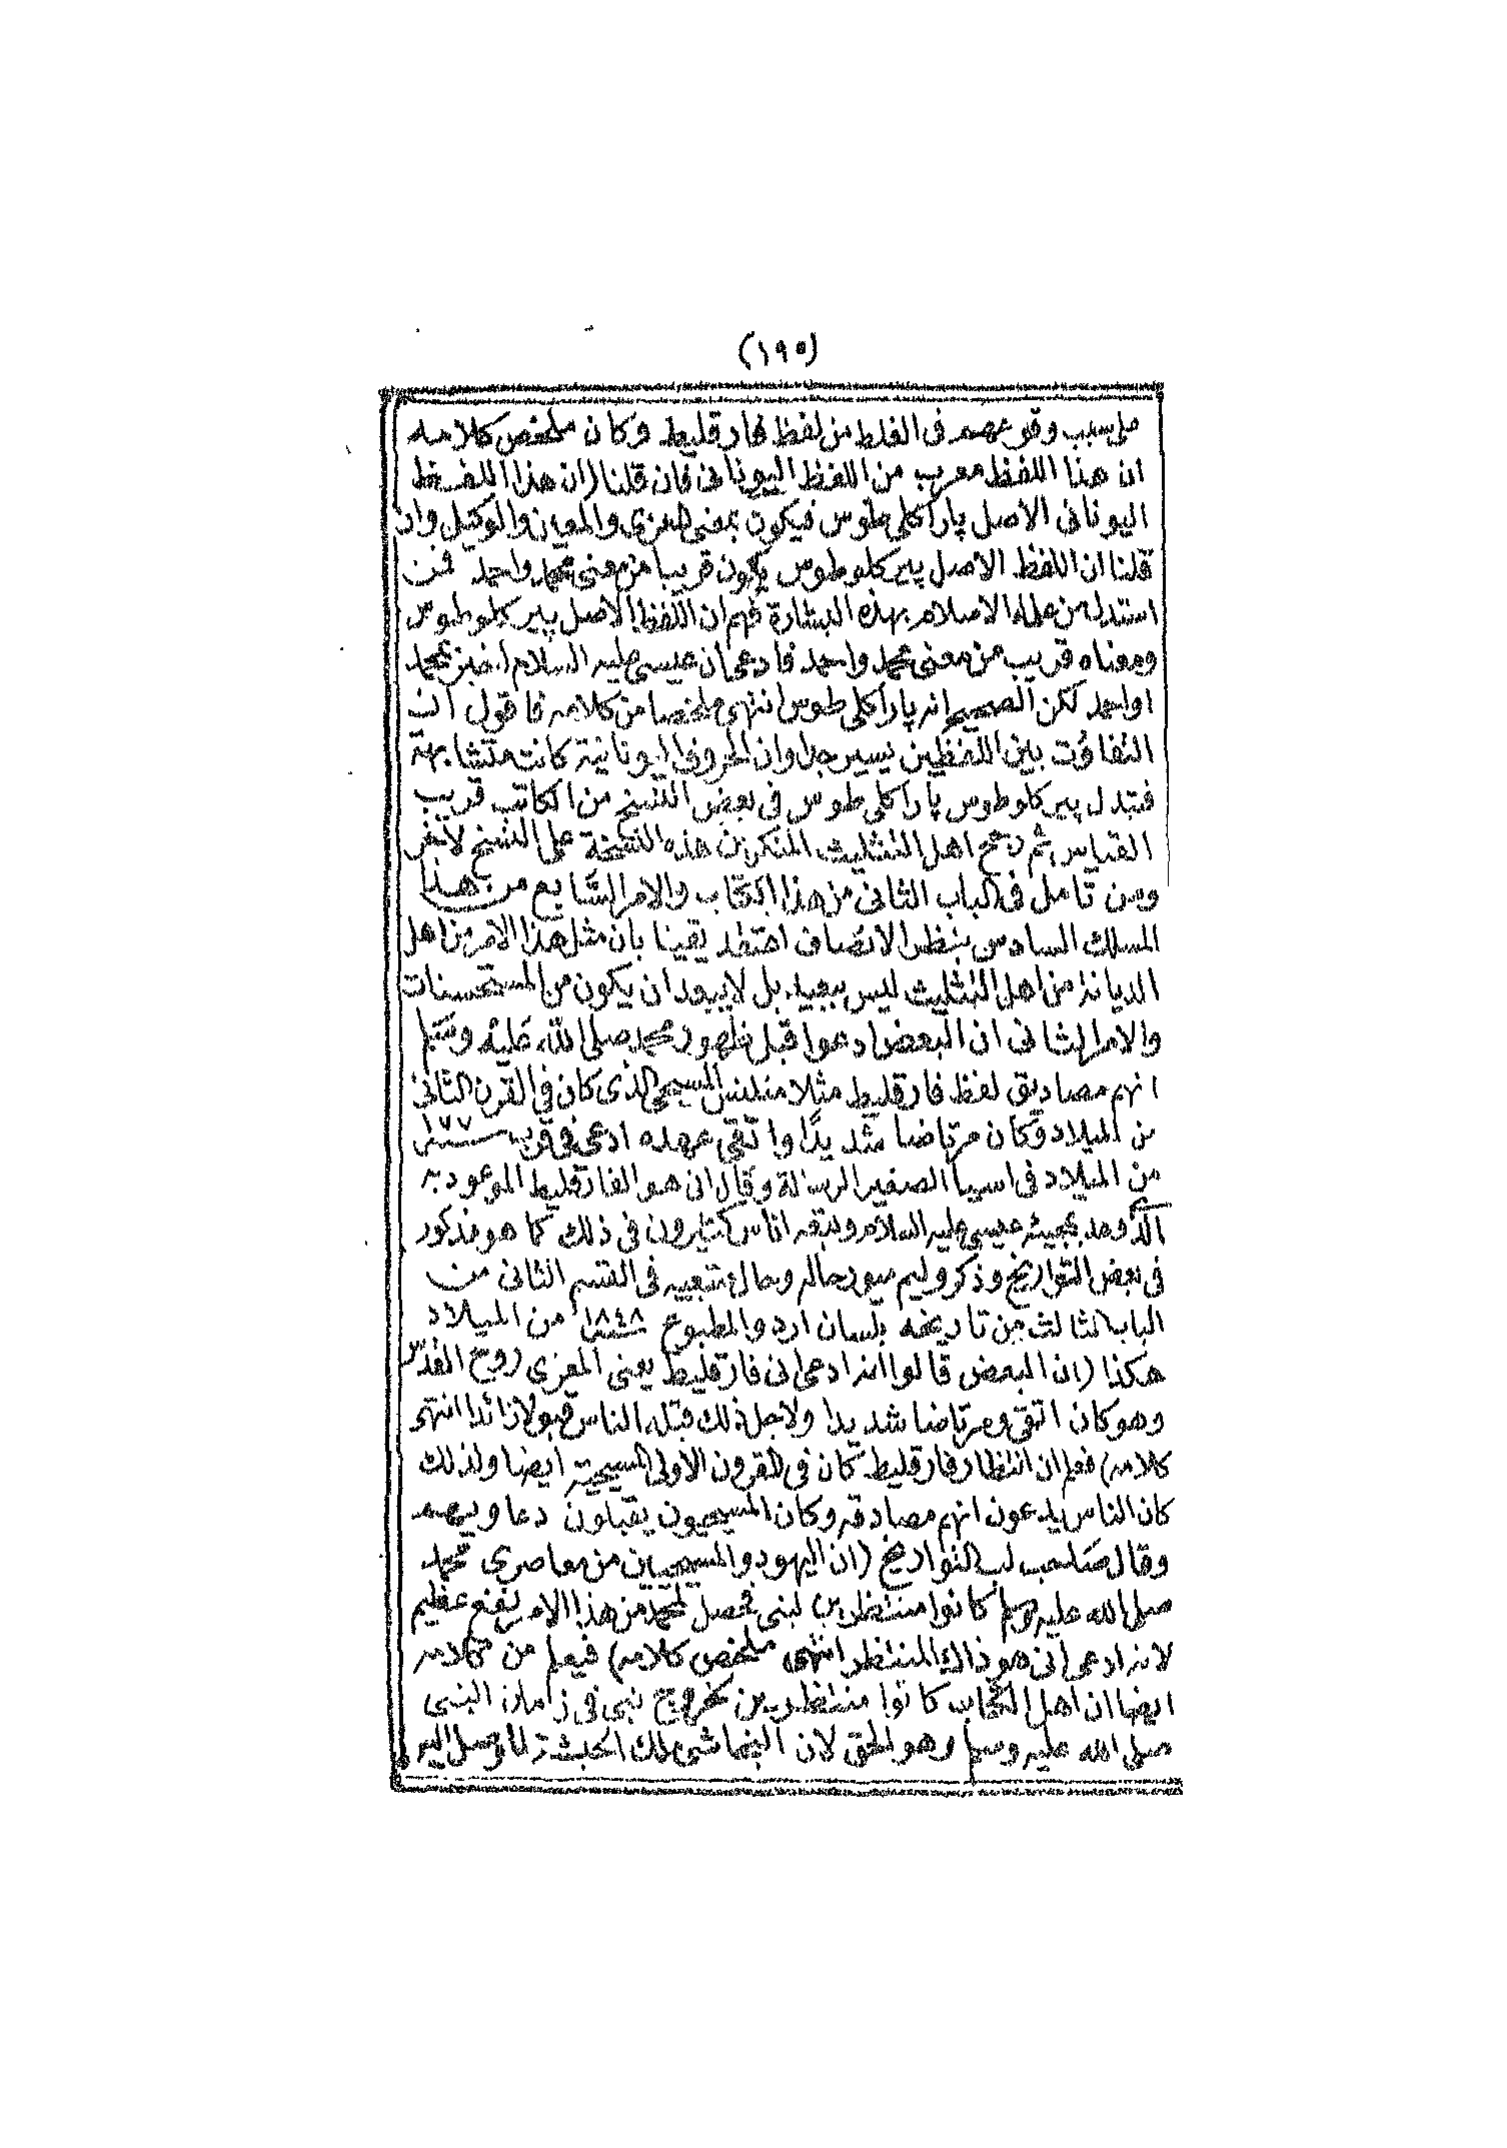 (١٩٥)
على سبب وقوعهم فى الغلط من لفظ فارقليط وكان ملخص كلامه
ان هذا اللفظ معرب من اللفظ اليونانى فان قلنا (ان هذا اللفظ
اليونانى الاصل پاراكلى طوس فيكون بمعنى المعزى والمعين والوكيل وان
قلنا ان اللفظ الاصل پيركلوطوس يكون قريبا من معنى محمد واحمد فمن
استدل من علماء الاسلام بهذه البشارة فهم ان اللفظ الاصل پيركلوطوس
ومعناه قريب من معنى محمد واحمد فادعى ان عيسى عليه السلام اخبر بمحمد
او احمد لكن الصحيح انه پاراكلى طوس انتهى ملخصا من كلامه فاقول ان
التفاوت بين اللفظين يسير جدا وان الحروف اليونانية كانت متشابهة
فتبدل پيركلوطوس پاراكلى طوس فى بعض النسخ من الكاتب قريب
القياس ثم رجح اهل التثليث المنكرين هذه النسخة على النسخ الاخر
ومن تامل فى الباب الثانى من هذا الكتاب والامر السابع من هذا
المسلك السادس بنظر الانصاف اعتقد يقينا بان مثل هذا الامر من اهل
الديانة من اهل التثليث ليس ببعيد بل لا يبعد ان يكون من المستحسنات
والامر الثانى ان البعض ادعوا قبل ظهور محمد صلى الله عليه وسلم
انهم مصاديق لفظ فارقليط مثلا منتنس المسيحى الذى كان فى القرن الثانى
من الميلاد وكان مرتاضا شديدًا واتقى عهده ادعى فى قرب سنة ١٧٧
من الميلاد فى اسيا الصغير الرسالة وقال انى هو الفارقليط الموعود به
الذى وعد بمجيئه عيسى عليه السلام وتبعه اناس كثيرون فى ذلك كما هو مذكور
فى بعض التواريخ وذكر وليم ميور حاله وحال متبعيه فى القسم الثانى من
الباب الثالث من تاريخه بلسان اردو المطبوع سنة ١٨٤٨ من الميلاد
هكذا (ان البعض قالوا انه ادعى انى فارقليط يعنى المعزى روح القدس
وهو كان اتقى ومرتاضا شديدا ولاجل ذلك قبله الناس قبولا زائدا انتهى
كلامه) فعلم ان انتظار فارقليط كان فى القرون الاولى المسيحية ايضا ولذلك
كان الناس يدعون انهم مصاديقه وكان المسيحيون يقبلون دعاويهم
وقال صاحب لب التواريخ (ان اليهود والمسيحيين من معاصرى محمد
صلى الله عليه وسلم كانوا منتظرين لنبى فحصل لمحمد من هذا الامر نفع عظيم
لانه ادعى انى هو ذاك المنتظر انتهى ملخص كلامه) فيعلم من كلامه
ايضا ان اهل الكتاب كانوا منتظرين لخروج نبى فى زمان النبى
صلى الله عليه وسلم وهو الحق لان النجاشى ملك الحبشة لما وصل اليه